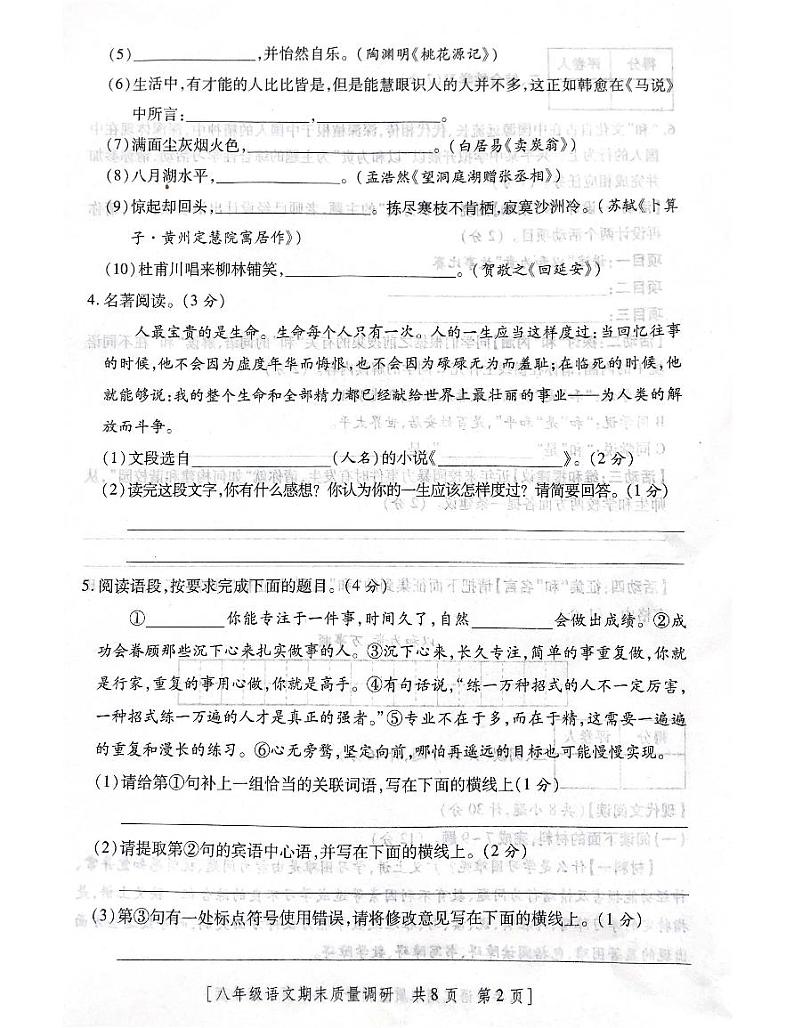 (5)____________,并怡然自乐。(陶渊明《桃花源记》)
(6)生活中,有才能的人比比皆是,但是能慧眼识人的人并不多,这正如韩愈在《马说》
中所言:____________,____________。
(7)满面尘灰烟火色,____________。(白居易《卖炭翁》)
(8)八月湖水平,____________。(孟浩然《望洞庭湖赠张丞相》)
(9)惊起却回头,____________。拣尽寒枝不肯栖,寂寞沙洲冷。(苏轼《卜算
子·黄州定慧院寓居作》)
(10)杜甫川唱来柳林铺笑,____________。(贺敬之《回延安》)
4.名著阅读。(3分)
人最宝贵的是生命。生命每个人只有一次。人的一生应当这样度过:当回忆往事
的时候,他不会因为虚度年华而悔恨,也不会因为碌碌无为而羞耻;在临死的时候,他
就能够说:我的整个生命和全部精力都已经献给世界上最壮丽的事业——为人类的解
放而斗争。
(1)文段选自____________(人名)的小说《____________》。(2分)
(2)读完这段文字,你有什么感想?你认为你的一生应该怎样度过?请简要回答。(1分)
5.阅读语段,按要求完成下面的题目。(4分)
①________你能专注于一件事,时间久了,自然________会做出成绩。②成
功会眷顾那些沉下心来扎实做事的人。③沉下心来,长久专注,简单的事重复做,你就
是行家,重复的事用心做,你就是高手。④有句话说,“练一万种招式的人不一定厉害,
一种招式练一万遍的人才是真正的强者。”⑤专业不在于多,而在于精,这需要一遍遍
的重复和漫长的练习。⑥心无旁骛,坚定向前,哪怕再遥远的目标也可能慢慢实现。
(1)请给第①句补上一组恰当的关联词语,写在下面的横线上(1分)
(2)请提取第②句的宾语中心语,并写在下面的横线上。(2分)
(3)第③句有一处标点符号使用错误,请将修改意见写在下面的横线上。(1分)
[八年级语文期末质量调研 共8页 第2页]